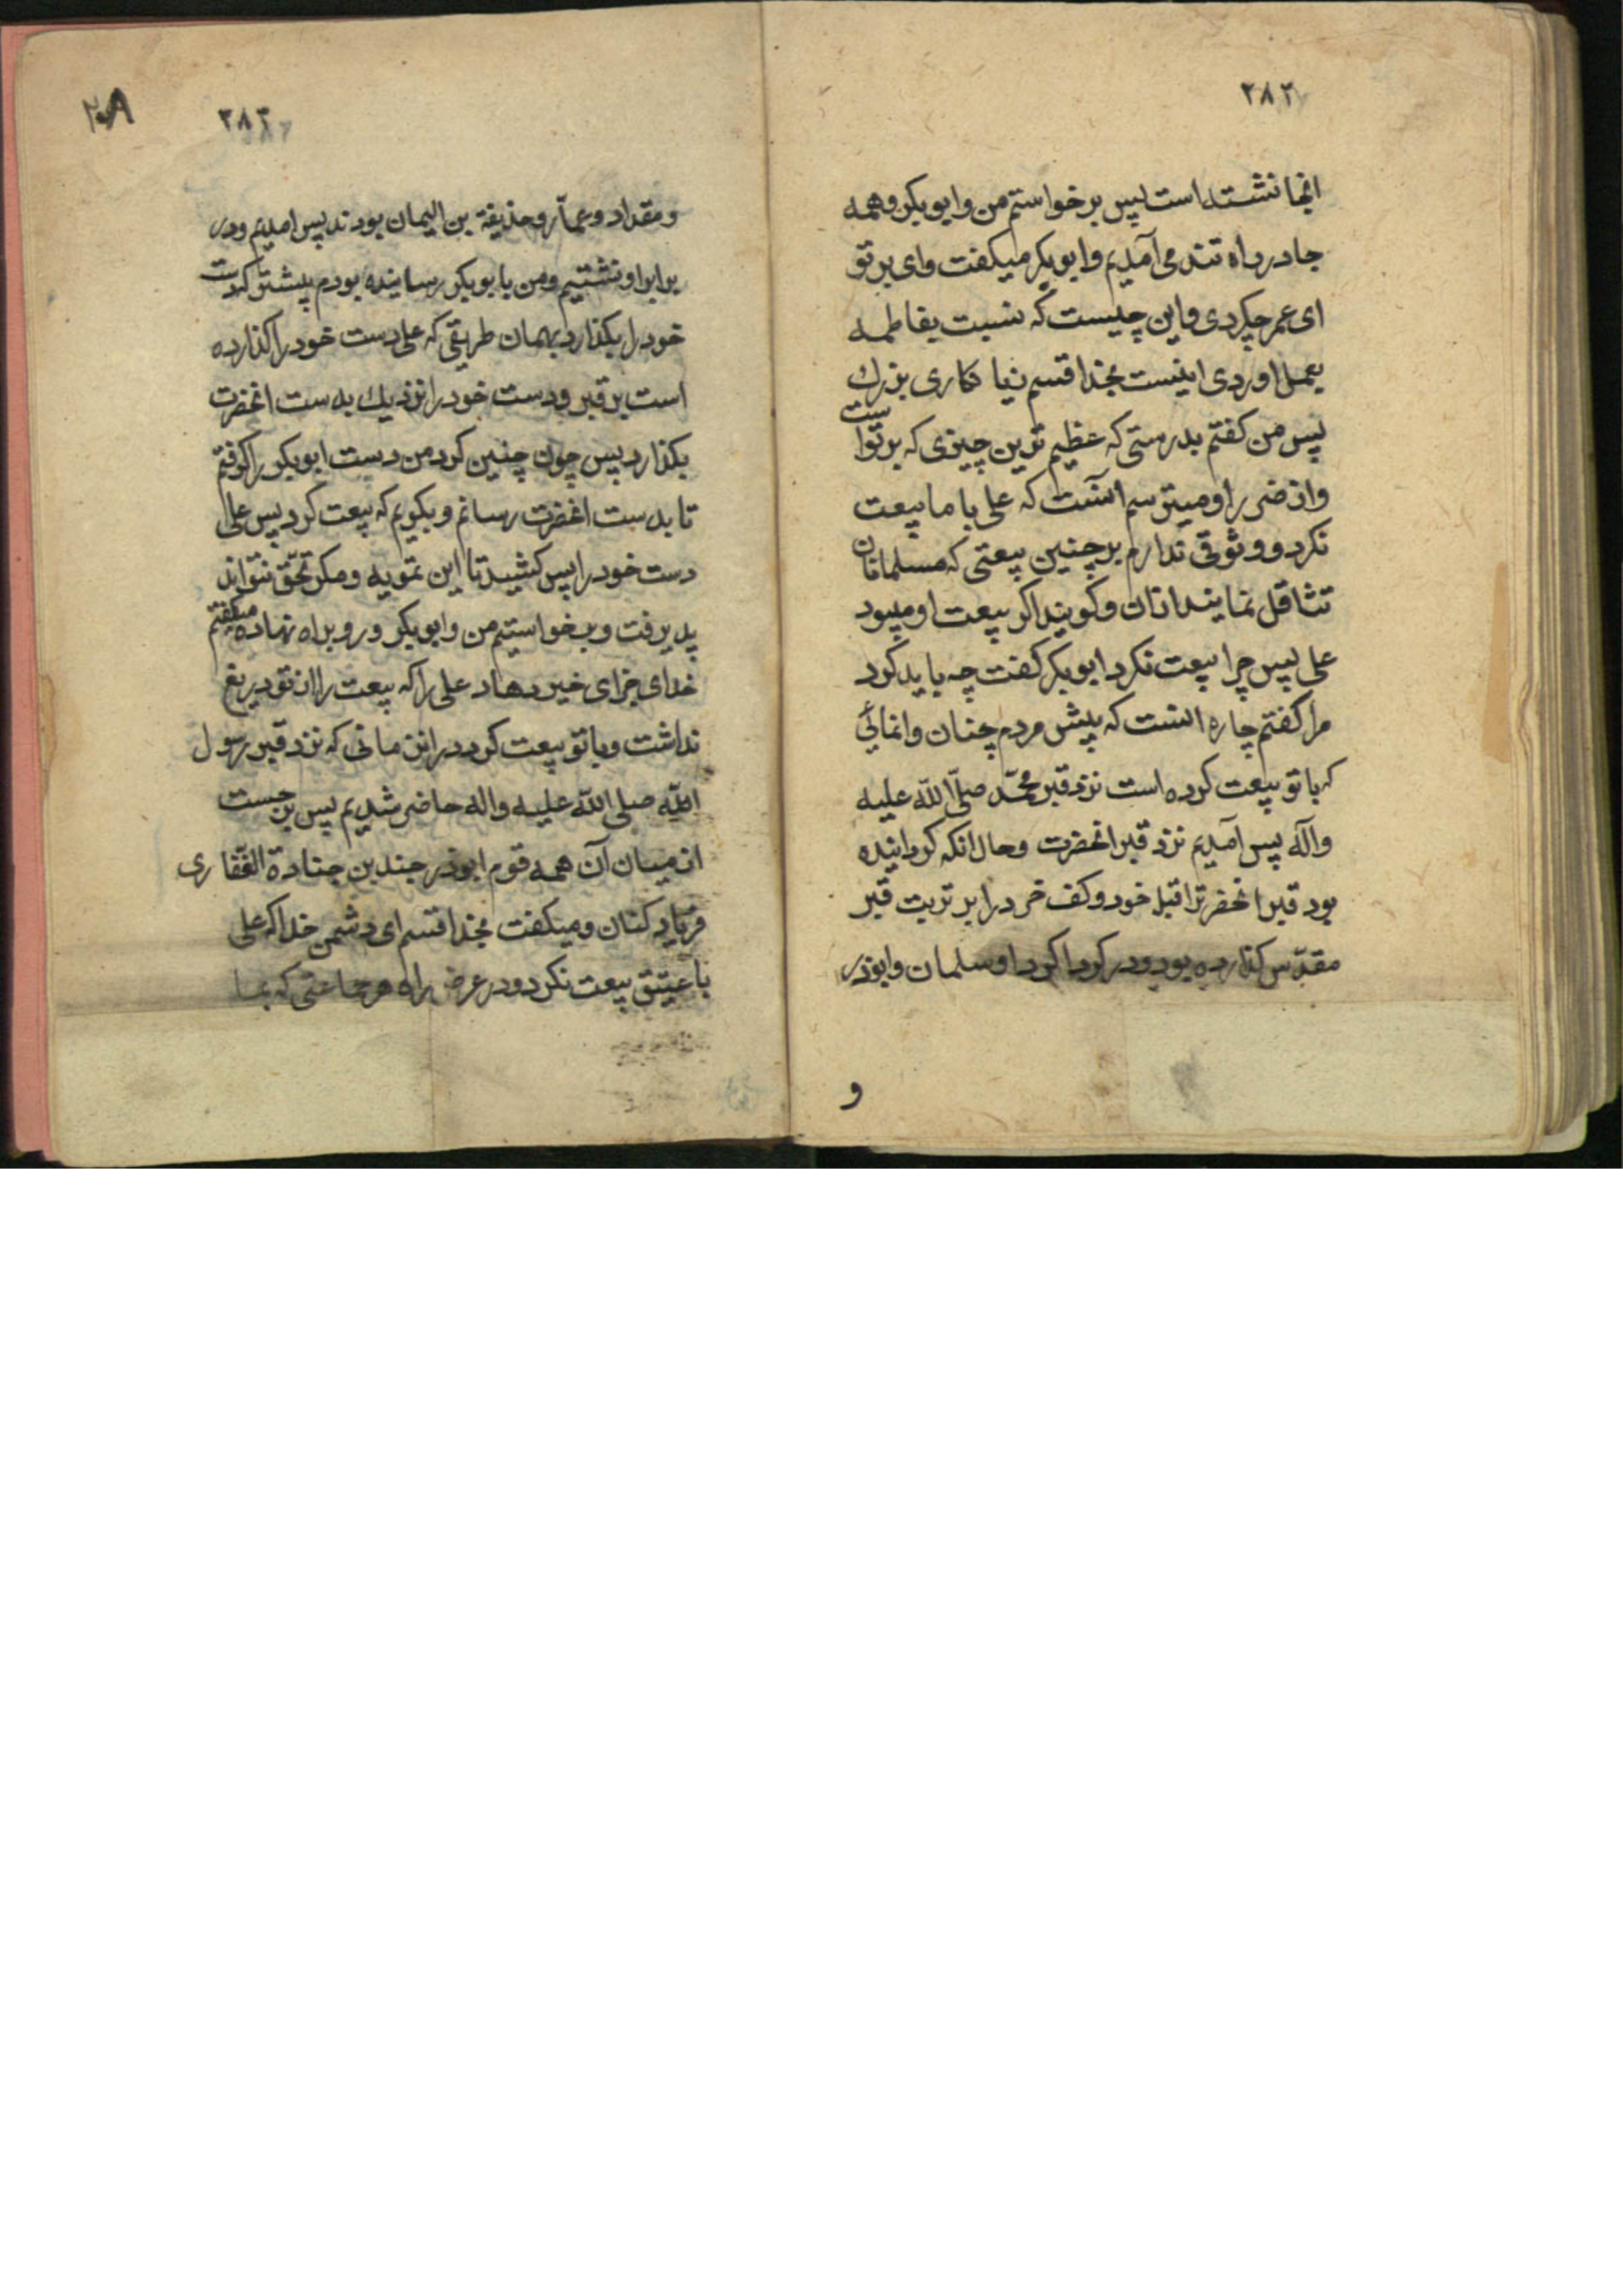 ۲۸۲
انجا نشسته است پس برخواستم من وابوبکر وهمه
جا در راه تند می آمدیم وابوبکر میکفت وای بر تو
ای عمر چکردی واین چیست که نسبت بفاطمه
بعمل اوردی اینست بخدا قسم زیا نکاری بزرك
پس من کفتم بدرستی که عظیم ترین چیزی که بر تو است
وان ضرر او میترسم انست که علی با ما بیعت
نکرد و وثوقی ندارم بر چنین بیعتی که مسلمانان
تثاقل نمایند ازان وکویند اکر بیعت او میبود
علی پس چرا بیعت نکرد ابوبکر کفت چه باید کرد
مرا کفتم چاره انست که پیش مردم چنان وانمائی
که با تو بیعت کرده است نزد قبر محمّد صلّی اللّه علیه
وآله پس آمدیم نزد قبر انحضرت وحال انکه کردانیده
بود قبر انحضرترا قبلۀ خود وکف خود را بر تربت قبر
مقدّس کذارده بود ودر کرداکرد او سلمان وابوذر
و
۲۸۳
ومقداد وعمّار وحذیفة بن الیمان بودند پس امدیم ودر
برابر او نشتیم ومن بابوبکر رسانیده بودم پیشتر که دست
خود را بکذارد بهمان طریقی که علی دست خود را کذارده
است بر قبر ودست خود را نزدیك بدست انحضرت
بکذارد پس چون چنین کرد من دست ابوبکر را کرفتم
تا بدست انحضرت رسانم وبکویم که بیعت کرد پس علی
دست خود را پس کشید تا این تمویه ومکر تحقّق نتواند
پذیرفت وبرخواستیم من وابوبکر ورو براه نهاده میکفتم
خدای جزای خیر دهاد علی را که بیعت را از تو دریغ
نداشت وبا تو بیعت کرد در این زمانی که نزد قبر رسول
اللّه صلی اللّه علیه واله حاضر شدیم پس برجست
از میان آن همه قوم ابوذر جندب بن جنادة الغفّاری
فریاد کنان ومیکفت بخدا قسم ای دشمن خدا که علی
با عتیق بیعت نکرد ودر عرض راه هر جماعتی که بما